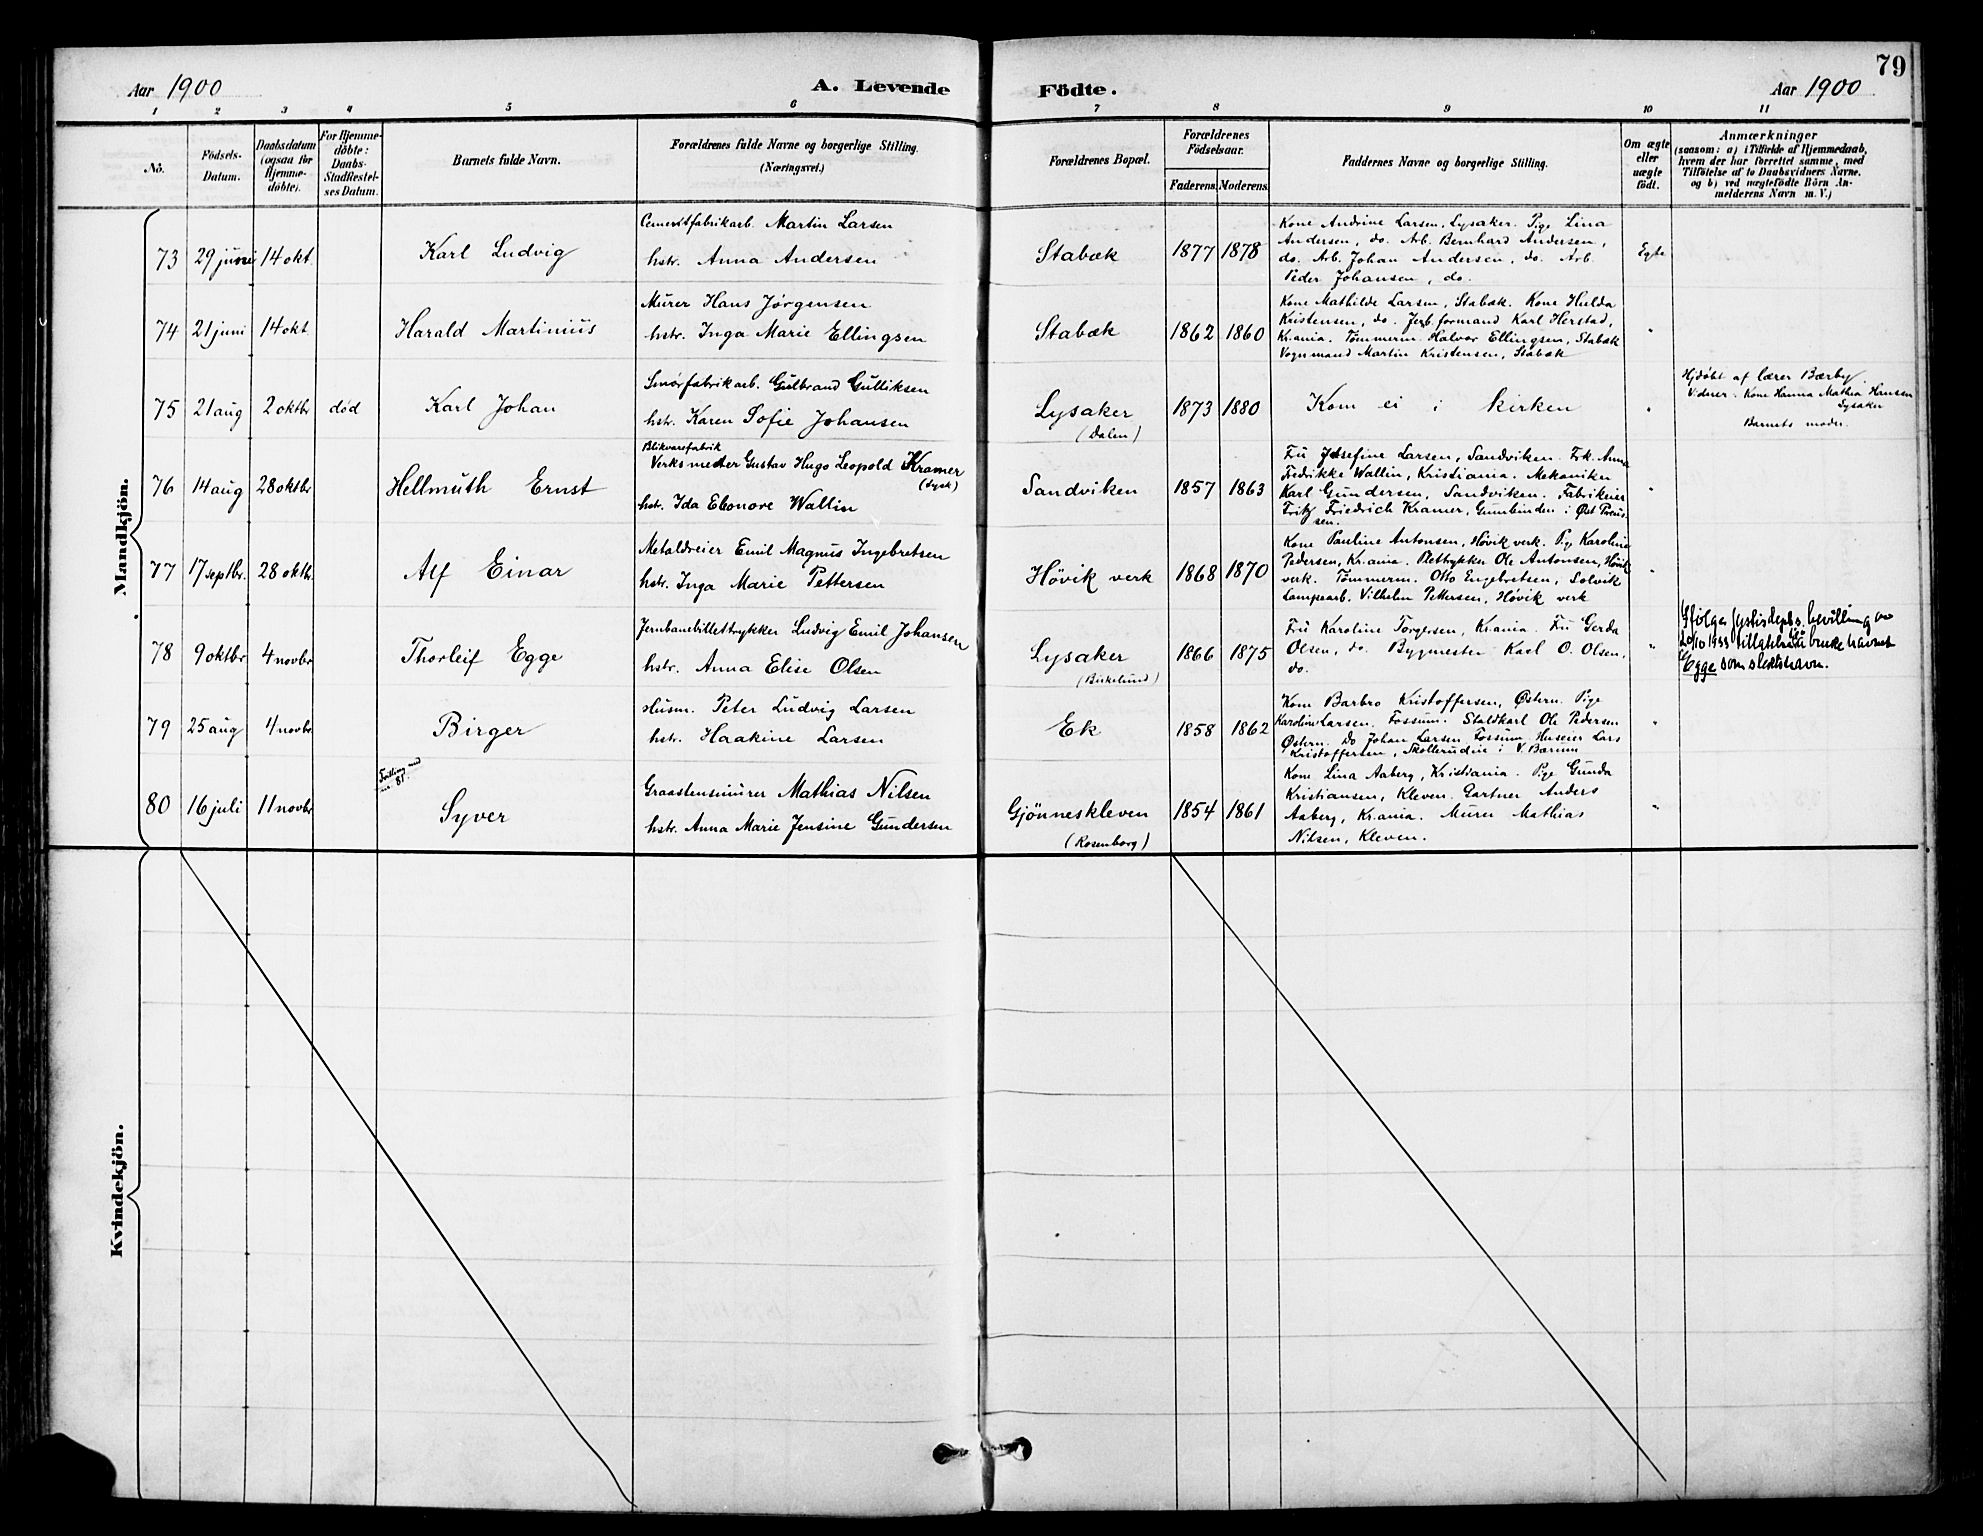 79
Aar 1900
A. Levende Födte.
Aar 1900
1 2 3 4 5 6 7 8 9 10 11
No.
Födsels-
Datum.
Daabsdatum
(ogsaa for
Hjemme-
döbte).
For Hjemme-
döbte:
Daabs-
Stadfæstel-
ses Datum.
Barnets fulde Navn.
Forældrenes fulde Navne og borgerlige Stilling.
(Næringsvei.)
Forældrenes Bopæl.
Forældrenes
Födselsaar.
Faderens. Moderens.
Faddernes Navne og borgerlige Stilling.
Om ægte
eller
uægte
födt.
Anmærkninger
(saasom: a) i Tilfælde af Hjemmedaab,
hvem der har forrettet samme, med
Tilföielse af to Daabsvidners Navne.
og b) ved uægtefödte Börn An-
melderens Navn m. V.)
Mandkjön.
73 29 juni 14 okt. Karl Ludvig
Cementfabrikarb. Martin Larsen
hstr. Anna Andersen
Stabæk 1877 1878
Kone Andrine Larsen, Lysaker. Pige Lina
Andersen, do. Arb. Bernhard Andersen,
do. Arb. Johan Andersen, do. Arb.
Peder Johansen, do.
Egte
74 21 juni 14 okt Harald Martinius
Murer Hans Jørgensen
hstr. Inga Marie Ellingsen
Stabæk 1862 1860
Kone Mathilde Larsen, Stabæk. Kone Hulda
Kristensen, do. Jerb.formand Karl Herstad,
Kr.ania. Tømmerm. Halvor Ellingsen, Stabæk
Vognmand Martin Kristensen, Stabæk
"
75 21 aug 2 oktbr død Karl Johan
Smørfabrikarb. Gulbrand Gulliksen
hstr. Karen Sofie Johansen
Lysaker
(Dalen)
1873 1880
Kom ei i kirken
"
Hjdøbt af lærer Bærby
Vidner: Kone Hanna Mathea Hansen
Lysaker
Barnets moder.
76 14 aug 28 oktbr Hellmuth Ernst
Blikvarefabrik
Verksmester Gustav Hugo Leopold Kramer
(tysk)
hstr. Ida Eleonore Wallin
Sandviken 1857 1863
Fru Josefine Larsen, Sandviken. Frk. Anna
Fredrikke Wallin, Kristiania. Mekaniker
Karl Gundersen, Sandviken. Fabrikeier
Fritz Friedrich Kramer, Gumbinden i Øst Preus-
sen.
"
77 17 septbr. 28 oktbr. Alf Einar
Metaldreier Emil Magnus Ingebretsen
hstr. Inga Marie Pettersen
Høvik verk 1868 1870
Kone Pauline Antonsen, Høvik verk. Pige Karoline
Pedersen, Kr.ania. Ole Antonsen, Høvik
verk. Tømmerm. Otto Engebretsen, Solvik
Lampearb. Vilhelm Pettersen, Høvik verk
"
78 9 oktbr 4 novbr Thorleif Egge
Jernbanebillettrykker Ludvig Emil Johansen
hstr. Anna Elise Olsen
Lysaker
(Birkelund)
1866 1875
Fru Karoline Torgersen, Kr.ania. Fru Gerda
Olsen, do. Bygmester Karl O. Olsen,
do.
"
Ifølge Justisdepts. bevilling av
20/10 1933 tillatels til å bruke navnet
Egge som slektsnavn.
79 25 aug 4 novbr Birger
Husm. Peter Ludvig Larsen
hstr. Haakine Larsen
Ek 1858 1862
Kone Barbro Kristoffersen, Østern. Pige
Karoline Larsen, Fossum. Staldkarl Ole Pedersen
Østern. Do Johan Larsen Fossum. Huseier Lars
Kristoffersen, Skollerudeie i V. Bærum
"
80 16 juli 11 novbr
Tvilling med
no 81.
Syver
Graastensmurer Mathias Nilsen
hstr. Anna Marie Jensine Gundersen
Gjønneskleven
(Rosenborg)
1854 1861
Kone Lina Aaberg, Kristiania. Pige Gunda
Kristiansen, Kleven. Gartner Anders
Aaberg, Kr.ania. Murer Mathias
Nilsen, Kleven.
"
Kvindekjön.